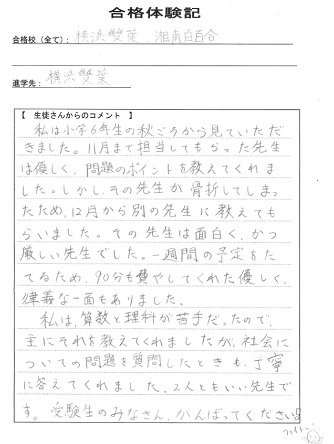 合格体験記
合格校(全て): 横浜雙葉 湘南白百合
進学先: 横浜雙葉
【 生徒さんからのコメント 】
私は小学6年生の秋ごろから見ていただ
きました。11月まで担当してもらった先生
は優しく、問題のポイントを教えてくれま
した。しかし、その先生が骨折してしまっ
たため、12月から別の先生に教えても
らいました。その先生は面白く、かつ
厳しい先生でした。一週間の予定をた
てるため、90分も費やしてくれた優しく、
律義な一面もありました。
私は、算数と理科が苦手だったので、
主にそれを教えてくれましたが、社会に
ついての問題を質問したときも、丁寧
に答えてくれました。2人ともいい先生で
す。受験生のみなさん、がんばってください。